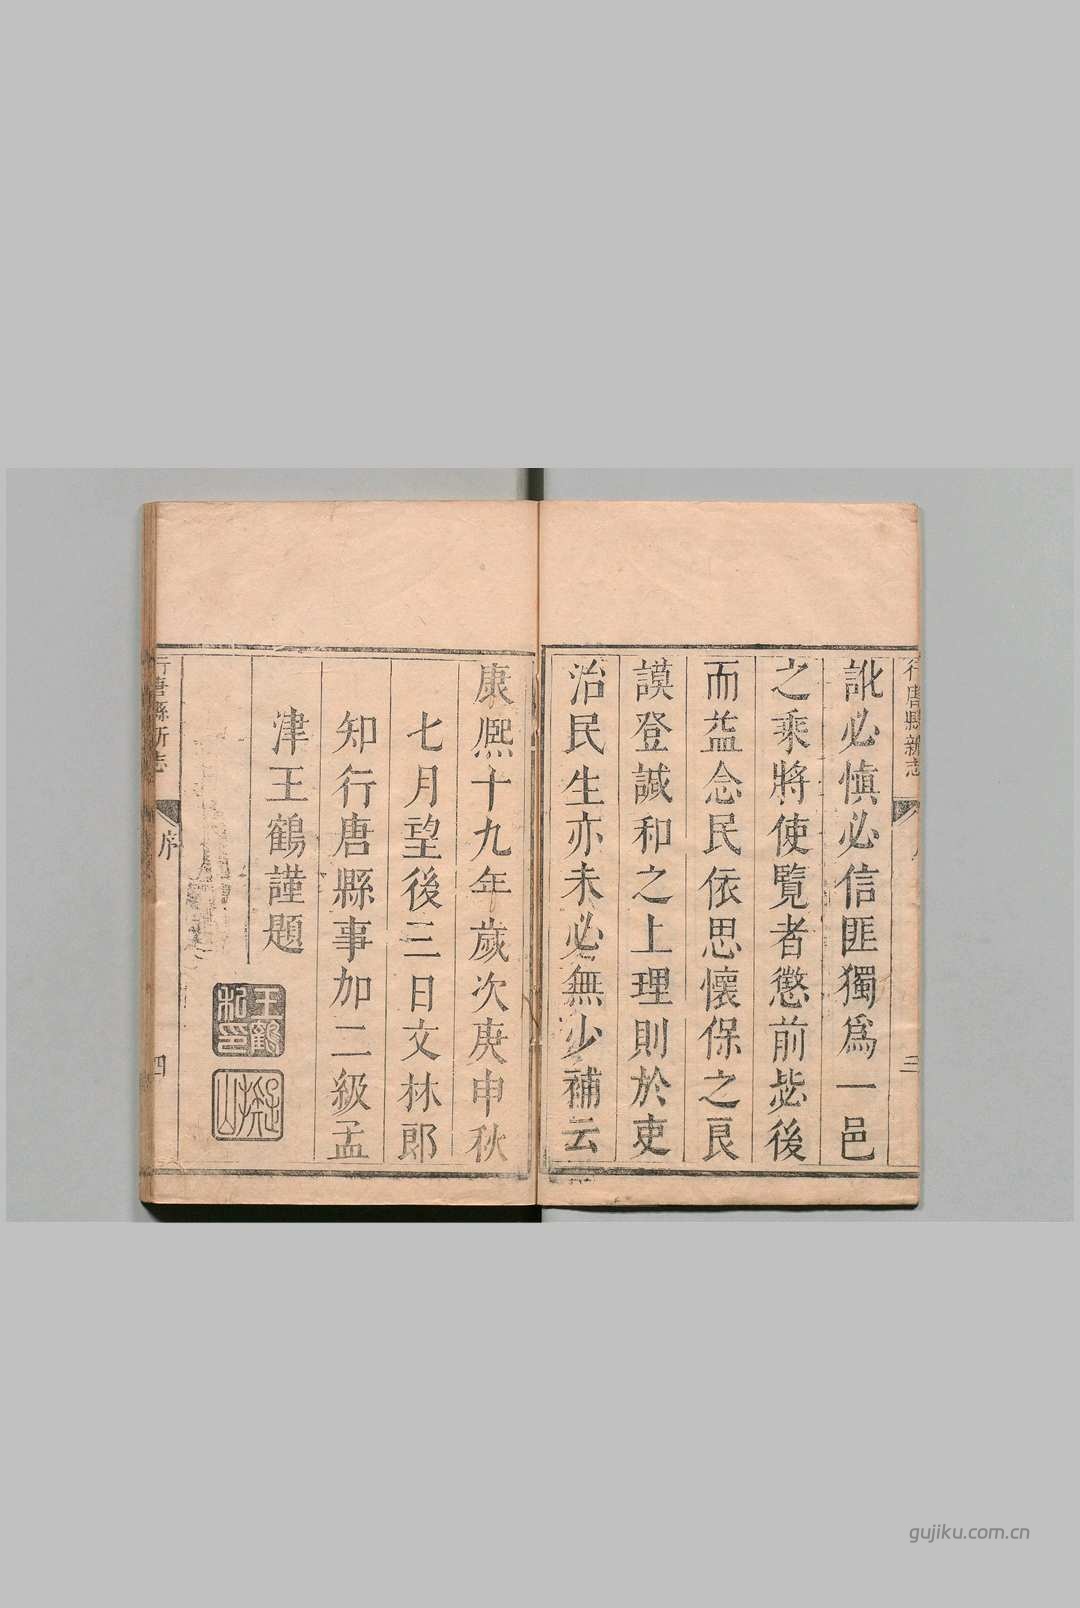 行唐縣新志
三
訛必慎必信匪獨爲一邑
之乘將使覽者懲前毖後
而益念民依思懷保之良
謨登諴和之上理則於吏
治民生亦未必無少補云
康熙十九年歲次庚申秋
七月望後三日文林郎
知行唐縣事加二級孟
津王鶴謹題
王鶴私印
行唐縣新志
序
四
gujiku.com.cn